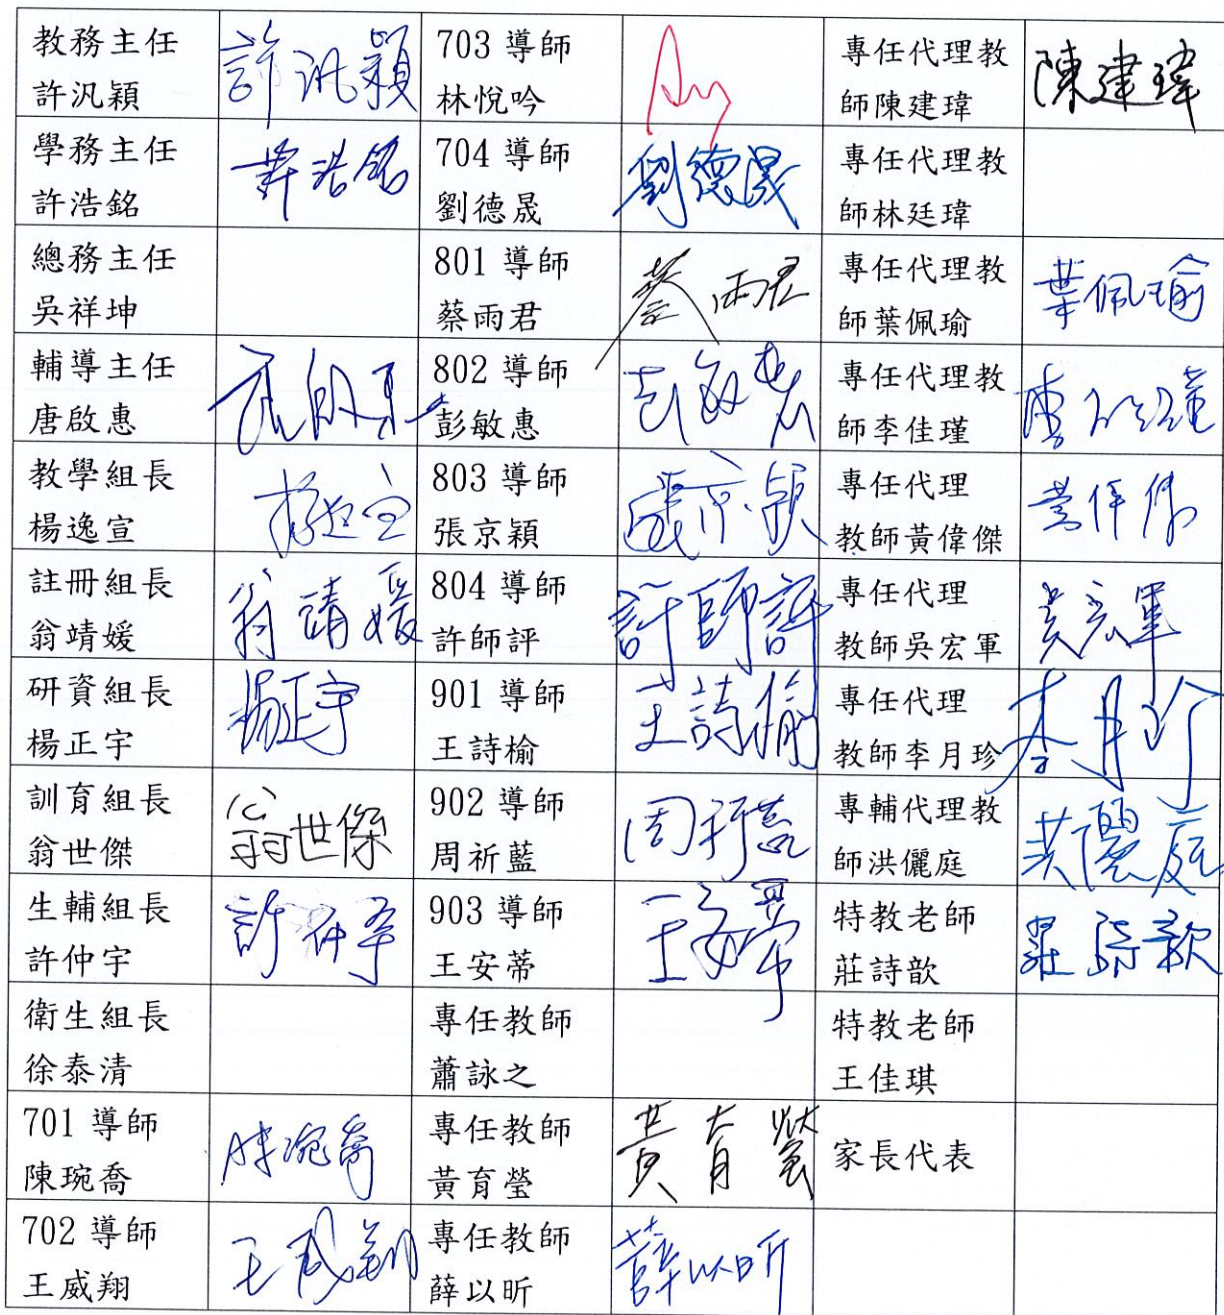 教務主任
許汎穎
許汎穎
703 導師
林悅吟
專任代理教
師陳建瑋
陳建瑋
學務主任
許浩銘
許浩銘
704 導師
劉德晟
劉德晟
專任代理教
師林廷瑋
總務主任
吳祥坤
801 導師
蔡雨君
蔡雨君
專任代理教
師葉佩瑜
葉佩瑜
輔導主任
唐啟惠
802 導師
彭敏惠
專任代理教
師李佳瑾
教學組長
楊逸宣
803 導師
張京穎
張京穎
專任代理
教師黃偉傑
註冊組長
翁靖媛
翁靖媛
804 導師
許師評
許師評
專任代理
教師吳宏軍
吳宏軍
研資組長
楊正宇
楊正宇
901 導師
王詩榆
王詩榆
專任代理
教師李月珍
李月珍
訓育組長
翁世傑
翁世傑
902 導師
周祈藍
專輔代理教
師洪儷庭
洪儷庭
生輔組長
許仲宇
許仲宇
903 導師
王安蒂
王安蒂
特教老師
莊詩歆
莊詩歆
衛生組長
徐泰清
專任教師
蕭詠之
特教老師
王佳琪
701 導師
陳琬喬
陳琬喬
專任教師
黃育瑩
黃育瑩
家長代表
702 導師
王威翔
王威翔
專任教師
薛以昕
薛以昕